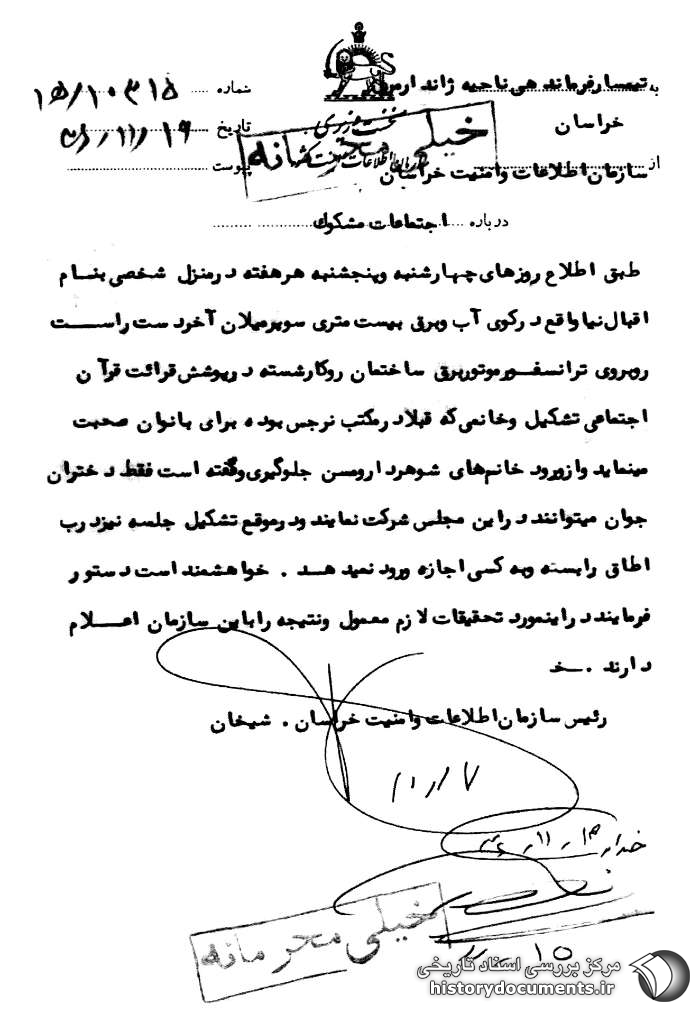 به تیمسار فرماندهی ناحیه ژاندارمری
خراسان
شماره ۱۵/۱۰۳۱۵
تاریخ
پیوست
نخست وزیری
سازمان اطلاعات و امنیت کشور
خیلی محرمانه
از سازمان اطلاعات و امنیت خراسان
درباره اجتماعات مشکوک
طبق اطلاع روزهای چهارشنبه و پنجشنبه هر هفته در منزل شخصی بنام
اقبال نیا واقع در کوی آب و برق بیست متری سوپر میلان آخر دست راست
روبروی ترانسفور موتور برق ساختمان روکار شسته در پوشش قرائت قرآن
اجتماعی تشکیل و خانمی که قبلا در مکتب نرجس بوده برای بانوان صحبت
مینماید و از ورود خانمهای شوهردار و مسن جلوگیری و گفته است فقط دختران
جوان میتوانند در این مجلس شرکت نمایند و در موقع تشکیل جلسه نیز درب
اطاق را بسته و به کسی اجازه ورود نمیدهد . خواهشمند است دستور
فرمایند در اینمورد تحقیقات لازم معمول و نتیجه را باین سازمان اعلام
دارند .خ
رئیس سازمان اطلاعات و امنیت خراسان . شیخان
خیلی محرمانه
مرکز بررسی اسناد تاریخی
historydocuments.ir